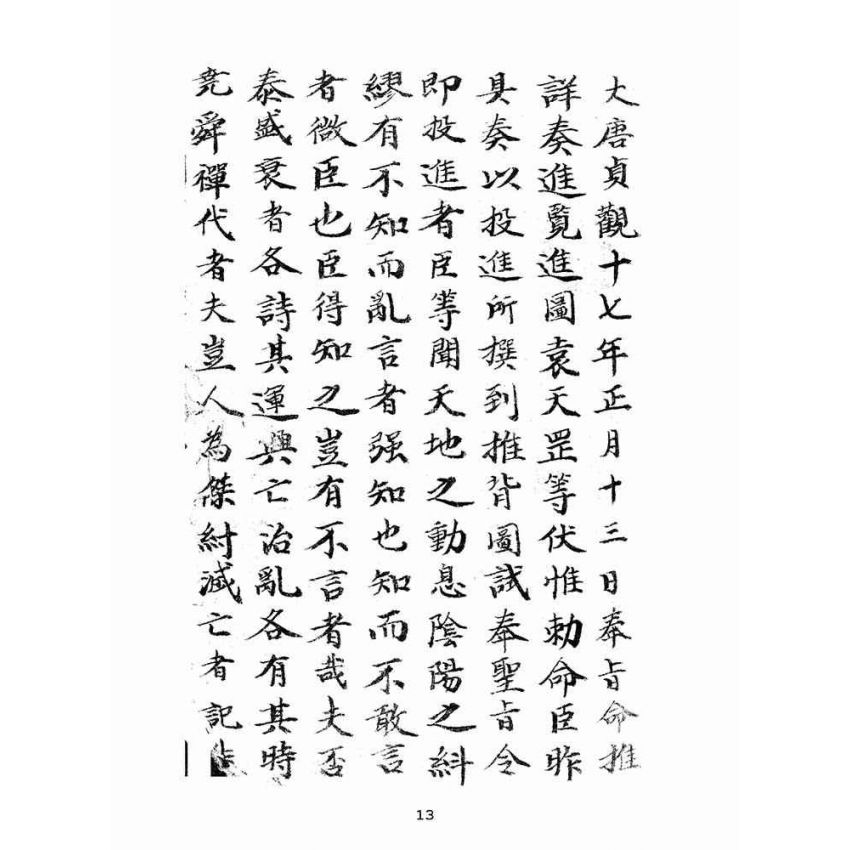 大唐貞觀十七年正月十三日奉旨命推
詳奏進覽進圖袁天罡等伏惟勅命臣昨
具奏以投進所撰到推背圖試奉聖旨令
即投進者臣等聞天地之動息陰陽之糾
繆有不知而亂言者强知也知而不敢言
者微臣也臣得知之豈有不言者哉夫否
泰盛衰者各詩其運興亡治亂各有其時
堯舜禪代者夫豈人為傑紂滅亡者記
13